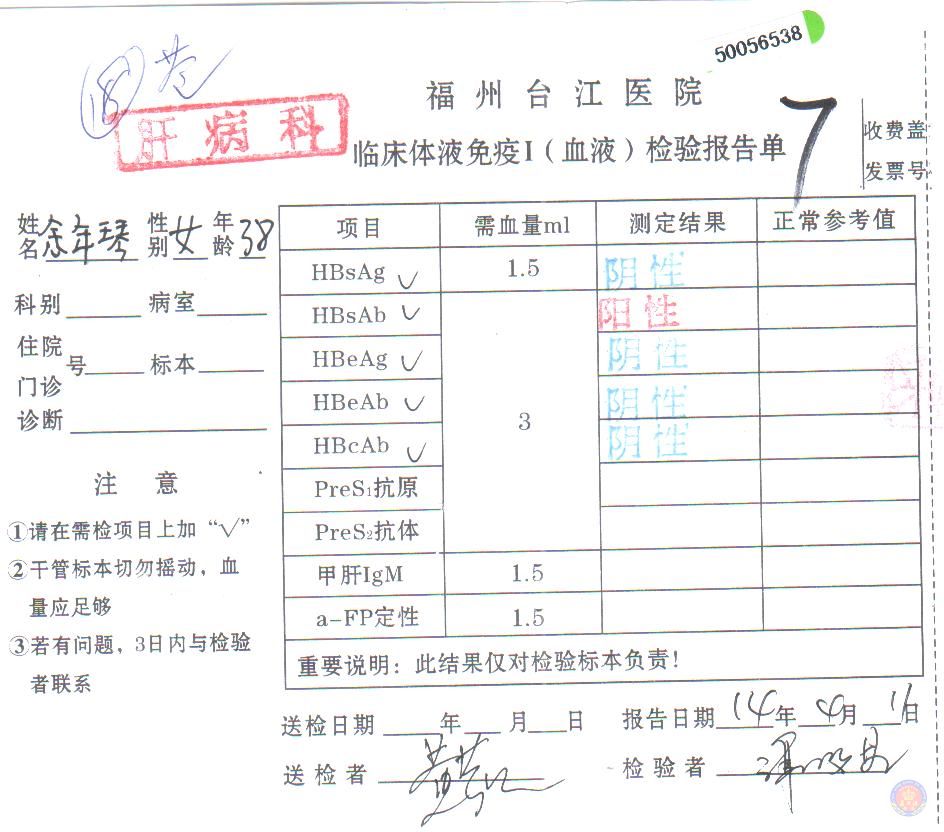 50056538
肝病科
福州台江医院
临床体液免疫I（血液）检验报告单
7
收费盖
发票号
姓名 余年琴 性别 女 年龄 38
科别 病室
住院
门诊 号 标本
诊断
注 意
①请在需检项目上加“√”
②干管标本切勿摇动，血
量应足够
③若有问题，3日内与检验
者联系
项目 需血量ml 测定结果 正常参考值
HBsAg ✓ 1.5 阴性
HBsAb ✓ 阳性
HBeAg ✓ 阴性
HBeAb ✓ 3 阴性
HBcAb ✓ 阴性
PreS₁抗原
PreS₂抗体
甲肝IgM 1.5
a-FP定性 1.5
重要说明：此结果仅对检验标本负责！
送检日期 年 月 日 报告日期 14年 4月 11日
送检者 检验者